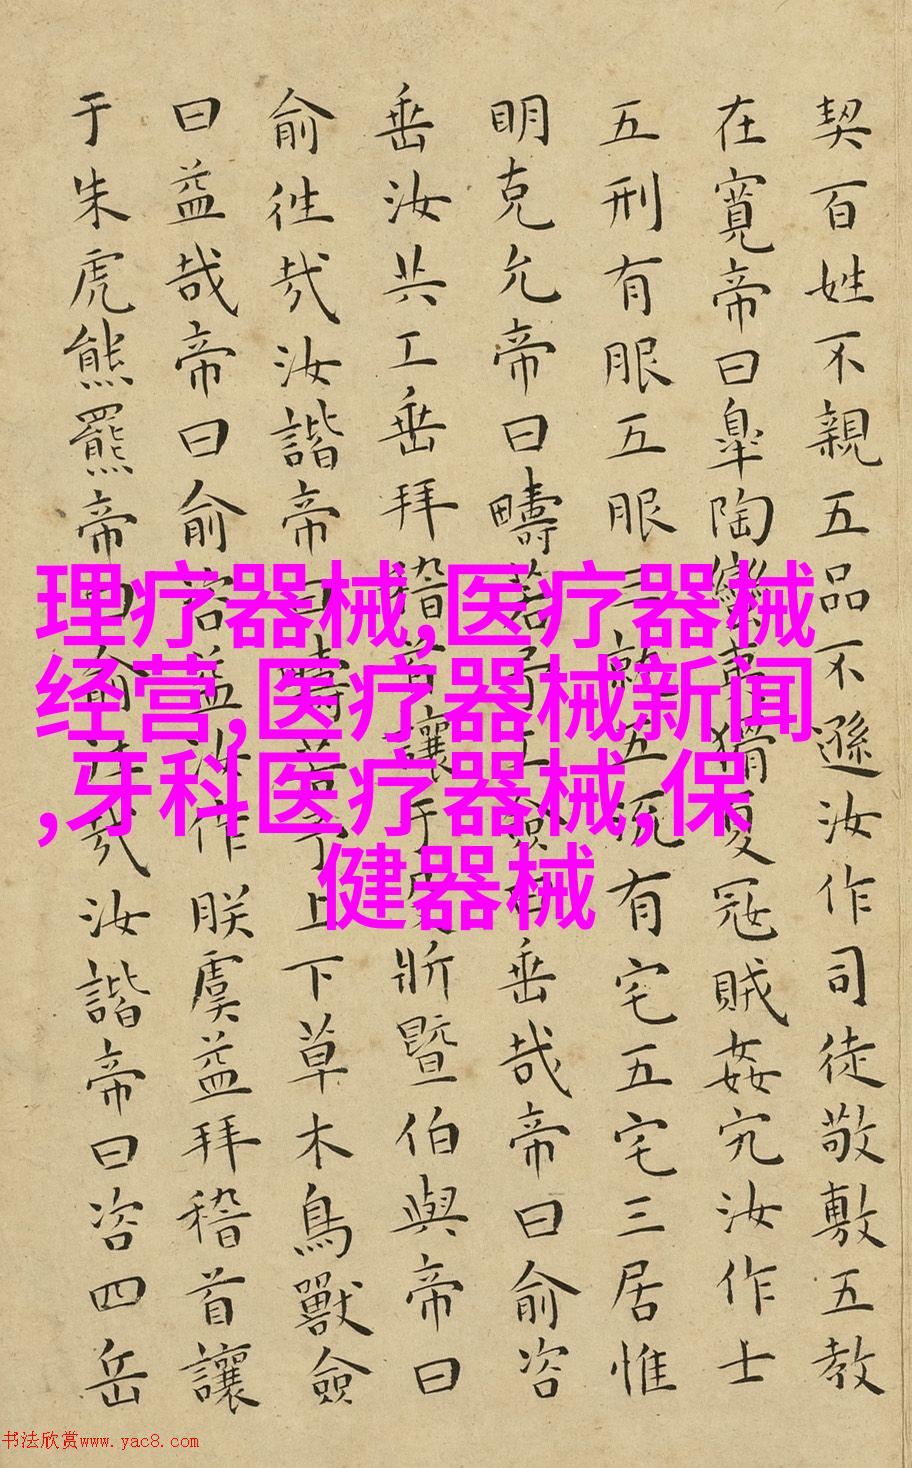 契百姓不親五品不遜汝作司徒敬敷五教
在寬帝曰皐陶蠻夷猾夏寇賊姦宄汝作士
五刑有服五服三就五流有宅五宅三居惟
明克允帝曰疇若予工僉曰垂哉帝曰俞咨
垂汝共工垂拜稽首讓于殳斨暨伯與帝曰
俞往哉汝諧帝曰疇若予上下草木鳥獸僉
曰益哉帝曰俞咨益汝作朕虞益拜稽首讓
于朱虎熊羆帝曰俞往哉汝諧帝曰咨四岳
理疗器械,医疗器械
经营,医疗器械新闻
,牙科医疗器械,保
健器械
书法欣赏www.yac8.com